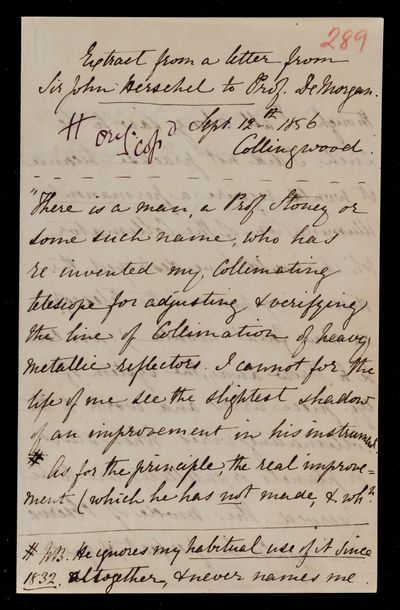 289
Extract from a letter from
Sir John Herschel to Prof. De Morgan.
# orig. cop^d
Sept. 12^th 1856
Collingwood.
"There is a man, a Prof. Stoney or
some such name, who has
re-invented my Collimating
telescope for adjusting & verifying
the line of Collimation of heavy
Metallic reflectors. I cannot for the
life of me see the slightest shadow
of an improvement in his instrum^t
# As for the principle, the real improve=
ment (which he has not made, & wh^h
# NB. He ignores my habitual use of it since
1832. altogether, & never names me.